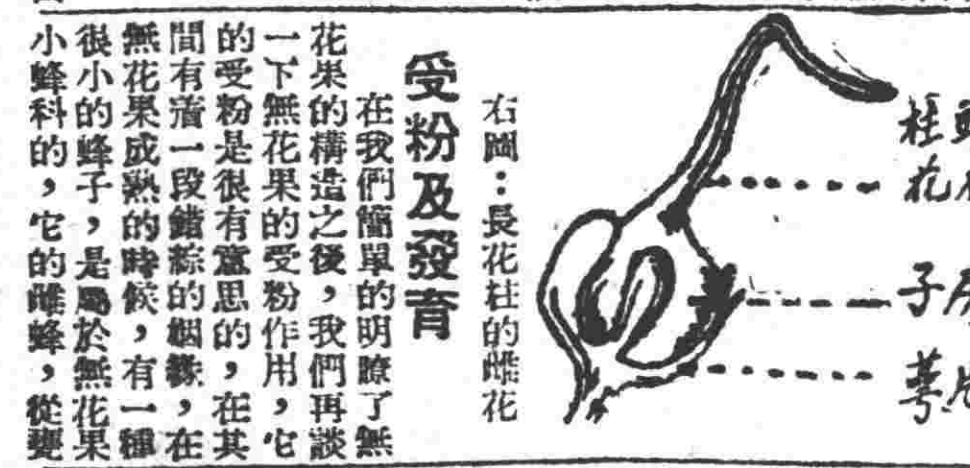 柱頭
花柱
子房
萼片
右圖：長花柱的雌花
受粉及發育
在我們簡單的明瞭了無
花果的構造之後，我們再談
一下無花果的受粉作用，它
的受粉是很有意思的，在其
間有着一段錯綜的姻緣，在
無花果成熟的時候，有一種
很小的蜂子，是屬於無花果
小蜂科的，它的雌蜂，從甕